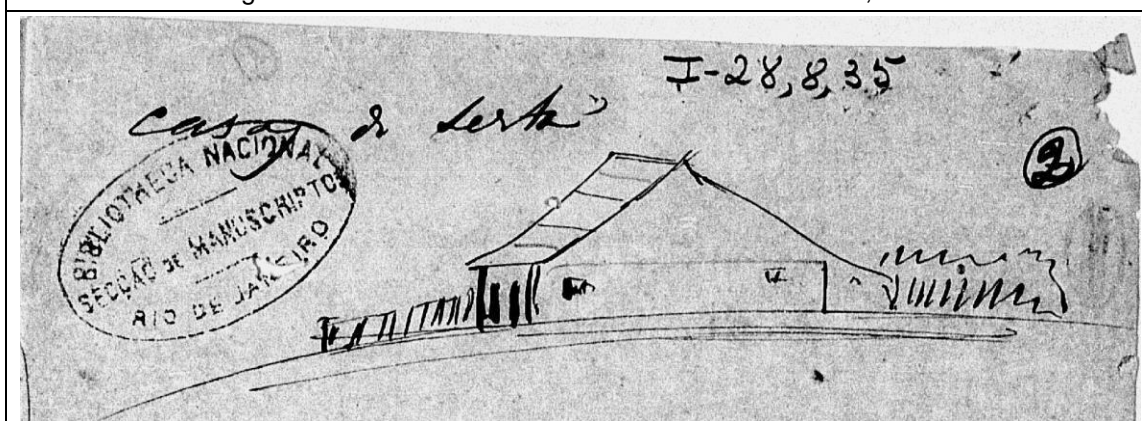 I-28,8,35
casa de sertão
2
BIBLIOTHECA NACIONAL
SECÇÃO DE MANUSCRIPTOS
RIO DE JANEIRO